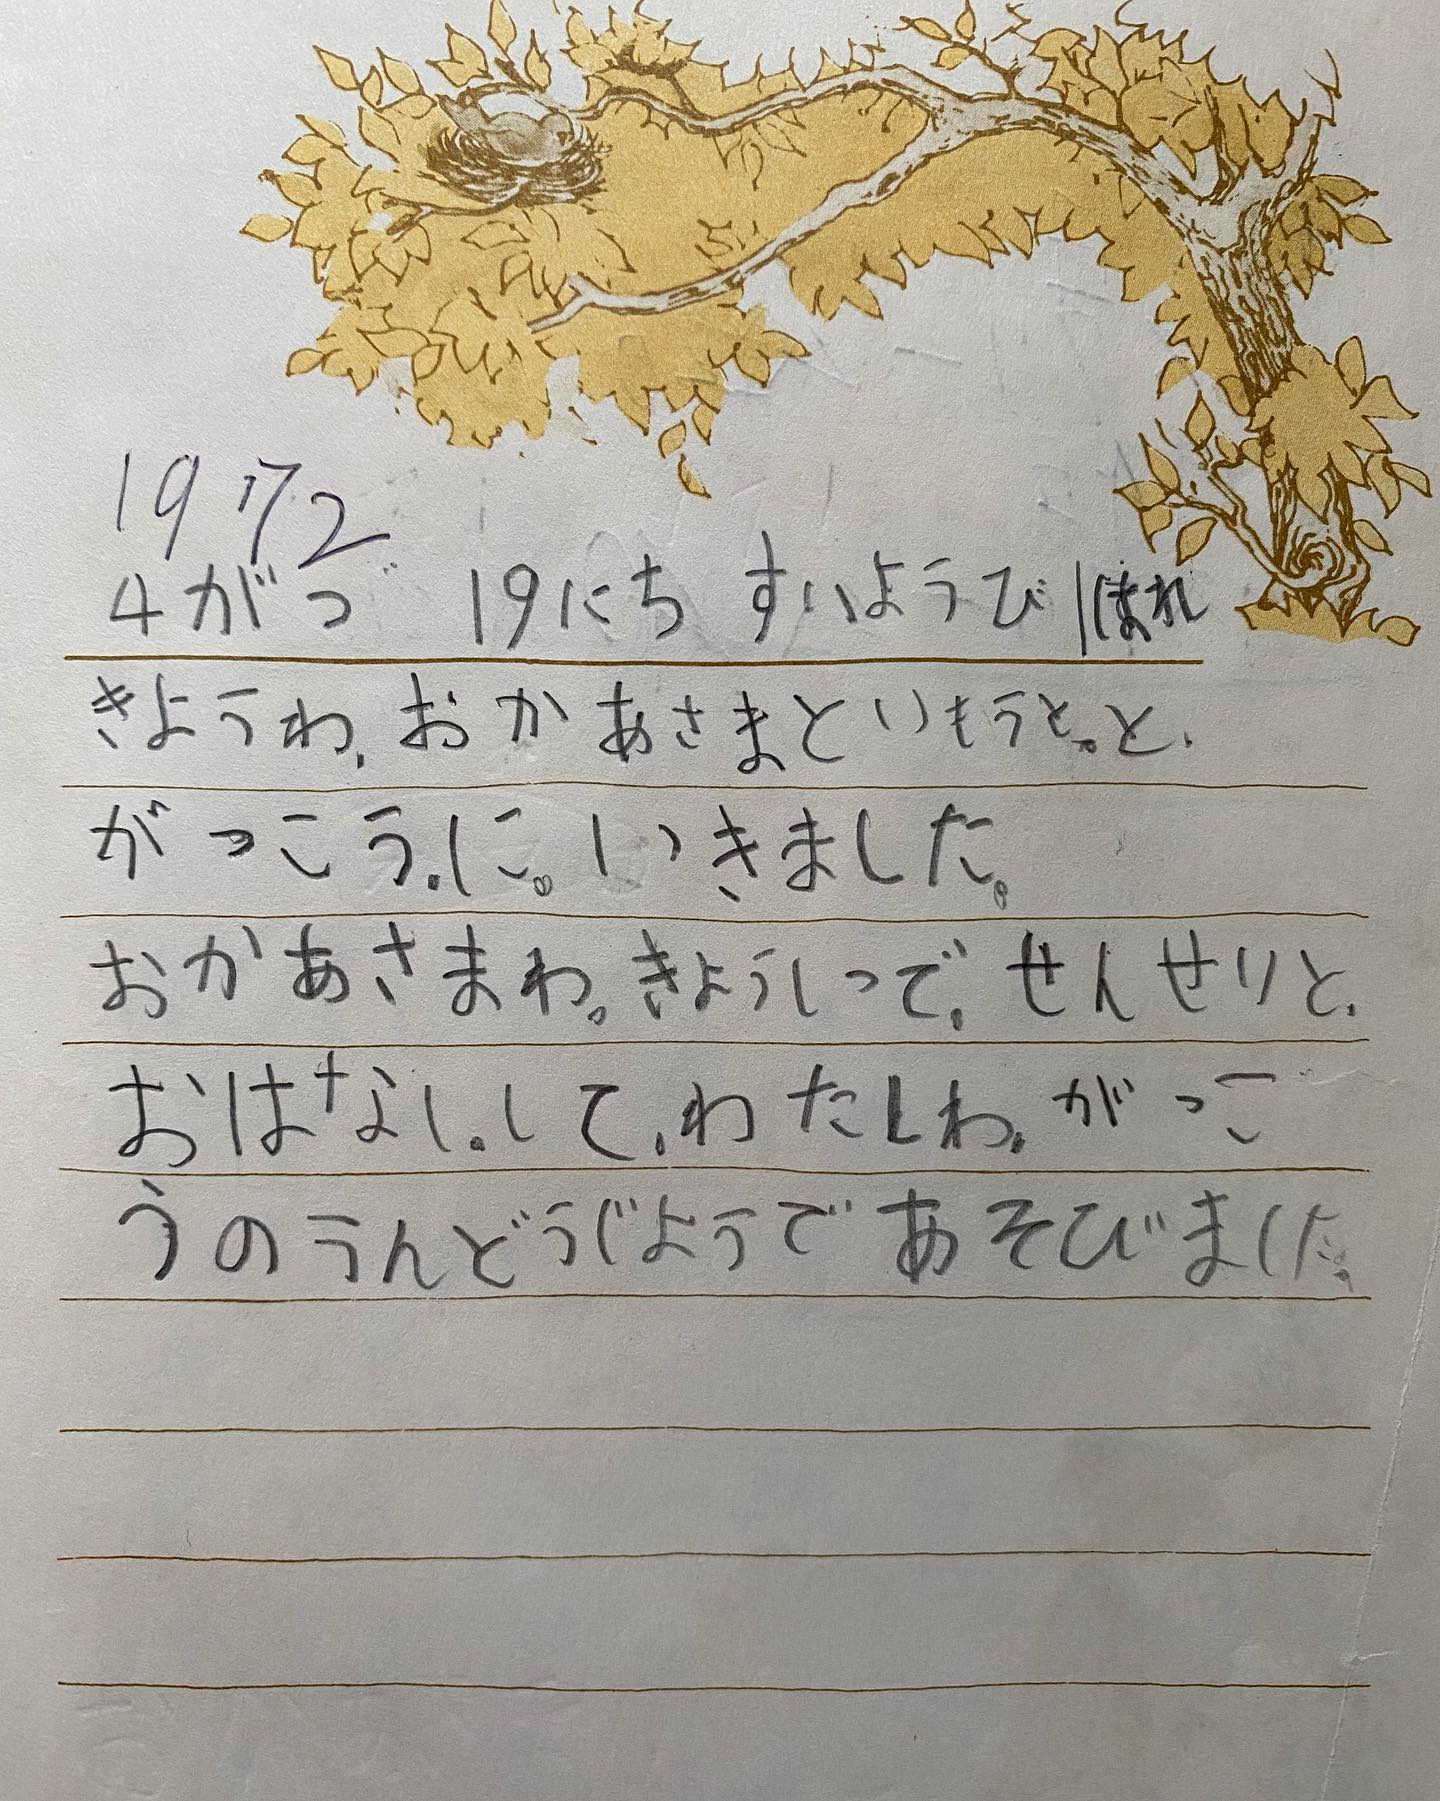 1972
4がつ 19にち すいようび はれ
きようわ、おかあさまといもうと。と、
がっこう、に。いきました。
おかあさまわ。きようしつで、せんせいと、
おはなし、して、わたしわ、がっこ
うのうんどうじようであそびました。